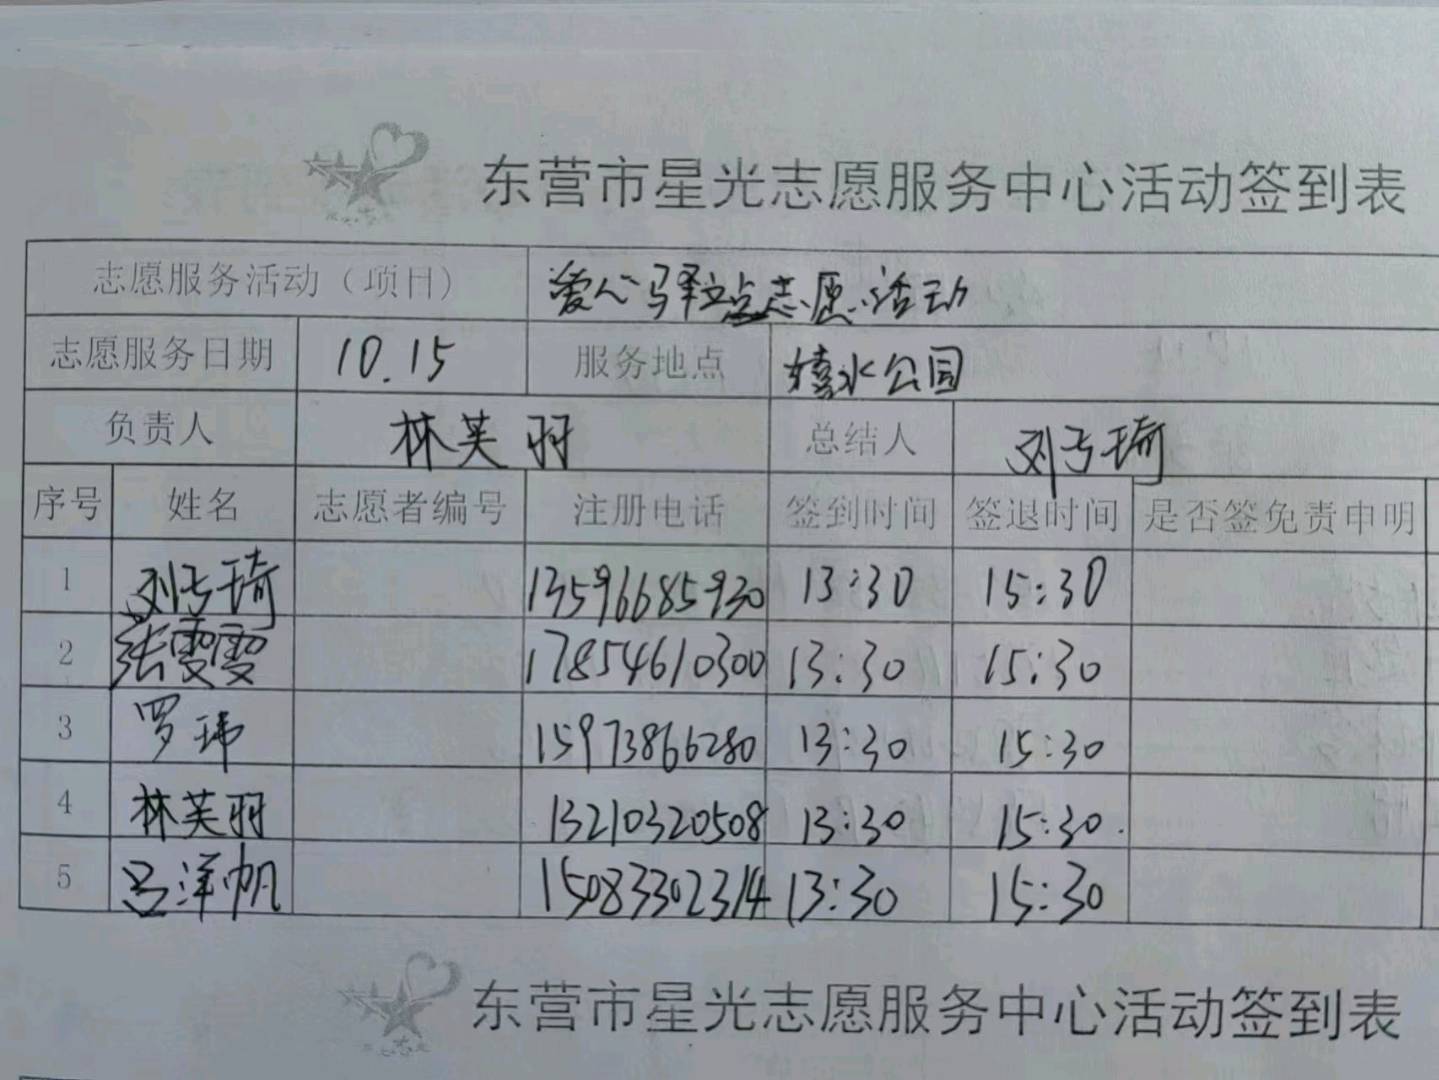 东营市星光志愿服务中心活动签到表
志愿服务活动（项目） 爱心驿站点志愿活动
志愿服务日期 10.15 服务地点 嬉水公园
负责人 林芙羽 总结人 刘于琦
序号 姓名 志愿者编号 注册电话 签到时间 签退时间 是否签免责申明
1 刘于琦 13596685930 13:30 15:30
2 张雯雯 17854610300 13:30 15:30
3 罗玮 15973866280 13:30 15:30
4 林芙羽 13210320508 13:30 15:30
5 吕洋帆 15083302314 13:30 15:30
东营市星光志愿服务中心活动签到表